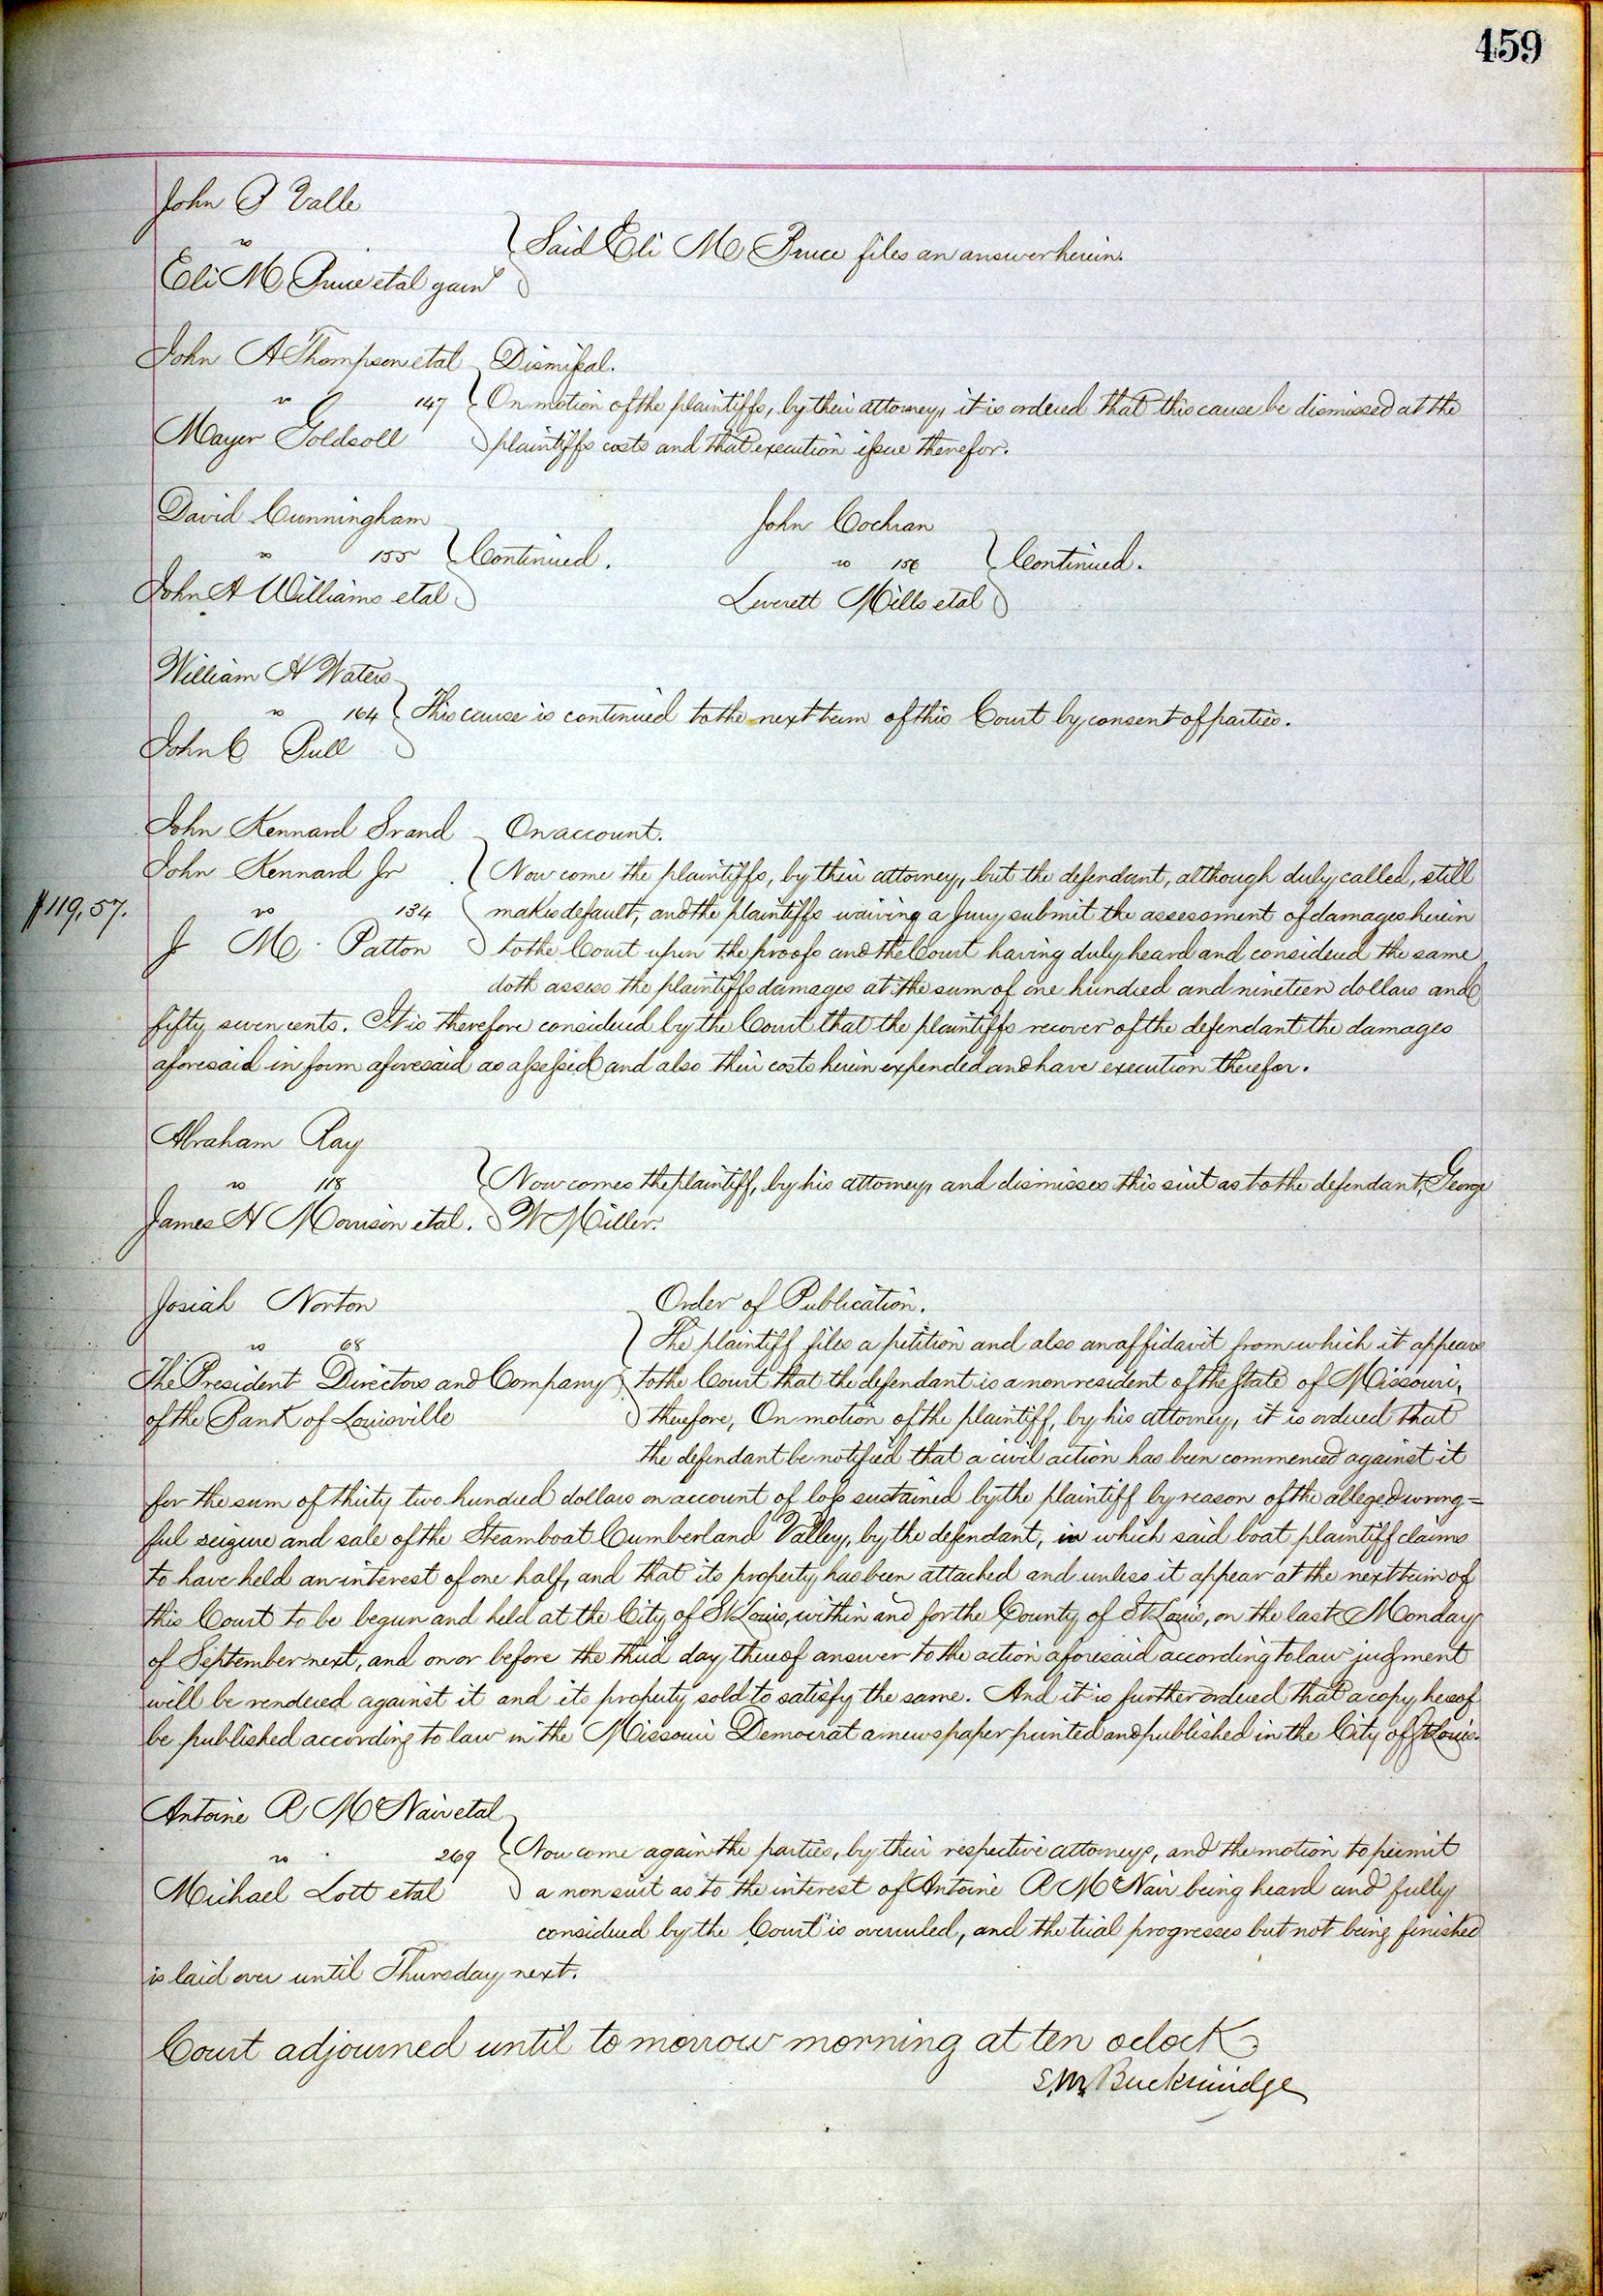 459
John P Valle
vs
Eli M Bruce et al garn^s
Said Eli M Bruce files an answer herein.
John A Thompson et al
vs 147
Mayer Goldsoll
Dismissal.
On motion of the plaintiffs, by their attorney, it is ordered that this cause be dismissed at the
plaintiffs costs and that execution issue therefor.
David Cunningham
vs 155
John A Williams et al
Continued.
John Cochran
vs 156
Leverett Mills et al
Continued.
William H Waters
vs 164
John C Bull
This cause is continued to the next term of this Court by consent of parties.
$119,57.
John Kennard Sr and
John Kennard Jr
vs 134
J M Patton
On account.
Now come the plaintiffs, by their attorney, but the defendant, although duly called, still
makes default, and the plaintiffs waiving a Jury submit the assessment of damages herein
to the Court upon the proofs and the Court having duly heard and considered the same
doth assess the plaintiffs damages at the sum of one hundred and nineteen dollars and
fifty seven cents. It is therefore considered by the Court that the plaintiffs recover of the defendant the damages
aforesaid in form aforesaid as assessed and also their costs herein expended and have execution therefor.
Abraham Ray
vs 118
James H Morrison et al.
Now comes the plaintiff, by his attorney, and dismisses this suit as to the defendant, George
W Miller.
Josiah Norton
vs 68
The President Directors and Company
of the Bank of Louisville
Order of Publication.
The plaintiff files a petition and also an affidavit from which it appears
to the Court that the defendant is a non resident of the State of Missouri,
therefore, On motion of the plaintiff, by his attorney, it is ordered that
the defendant be notified that a civil action has been commenced against it
for the sum of thirty two hundred dollars on account of loss sustained by the plaintiff by reason of the alleged wrong=
ful seizure and sale of the Steamboat Cumberland Valley, by the defendant, in which said boat plaintiff claims
to have held an interest of one half, and that its property has been attached and unless it appear at the next term of
this Court to be begun and held at the City of St Louis, within and for the County of St Louis, on the last Monday
of September next, and on or before the third day thereof answer to the action aforesaid according to law judgment
will be rendered against it and its property sold to satisfy the same. And it is further ordered that a copy hereof
be published according to law in the Missouri Democrat a newspaper printed and published in the City of St Louis.
Antoine R McNair et al
vs 269
Michael Lott et al
Now come again the parties, by their respective attorneys, and the motion to permit
a non suit as to the interest of Antoine R McNair being heard and fully
considered by the Court is overruled, and the trial progresses but not being finished
is laid over until Thursday next.
Court adjourned until to morrow morning at ten oclock
S. M. Breckinridge